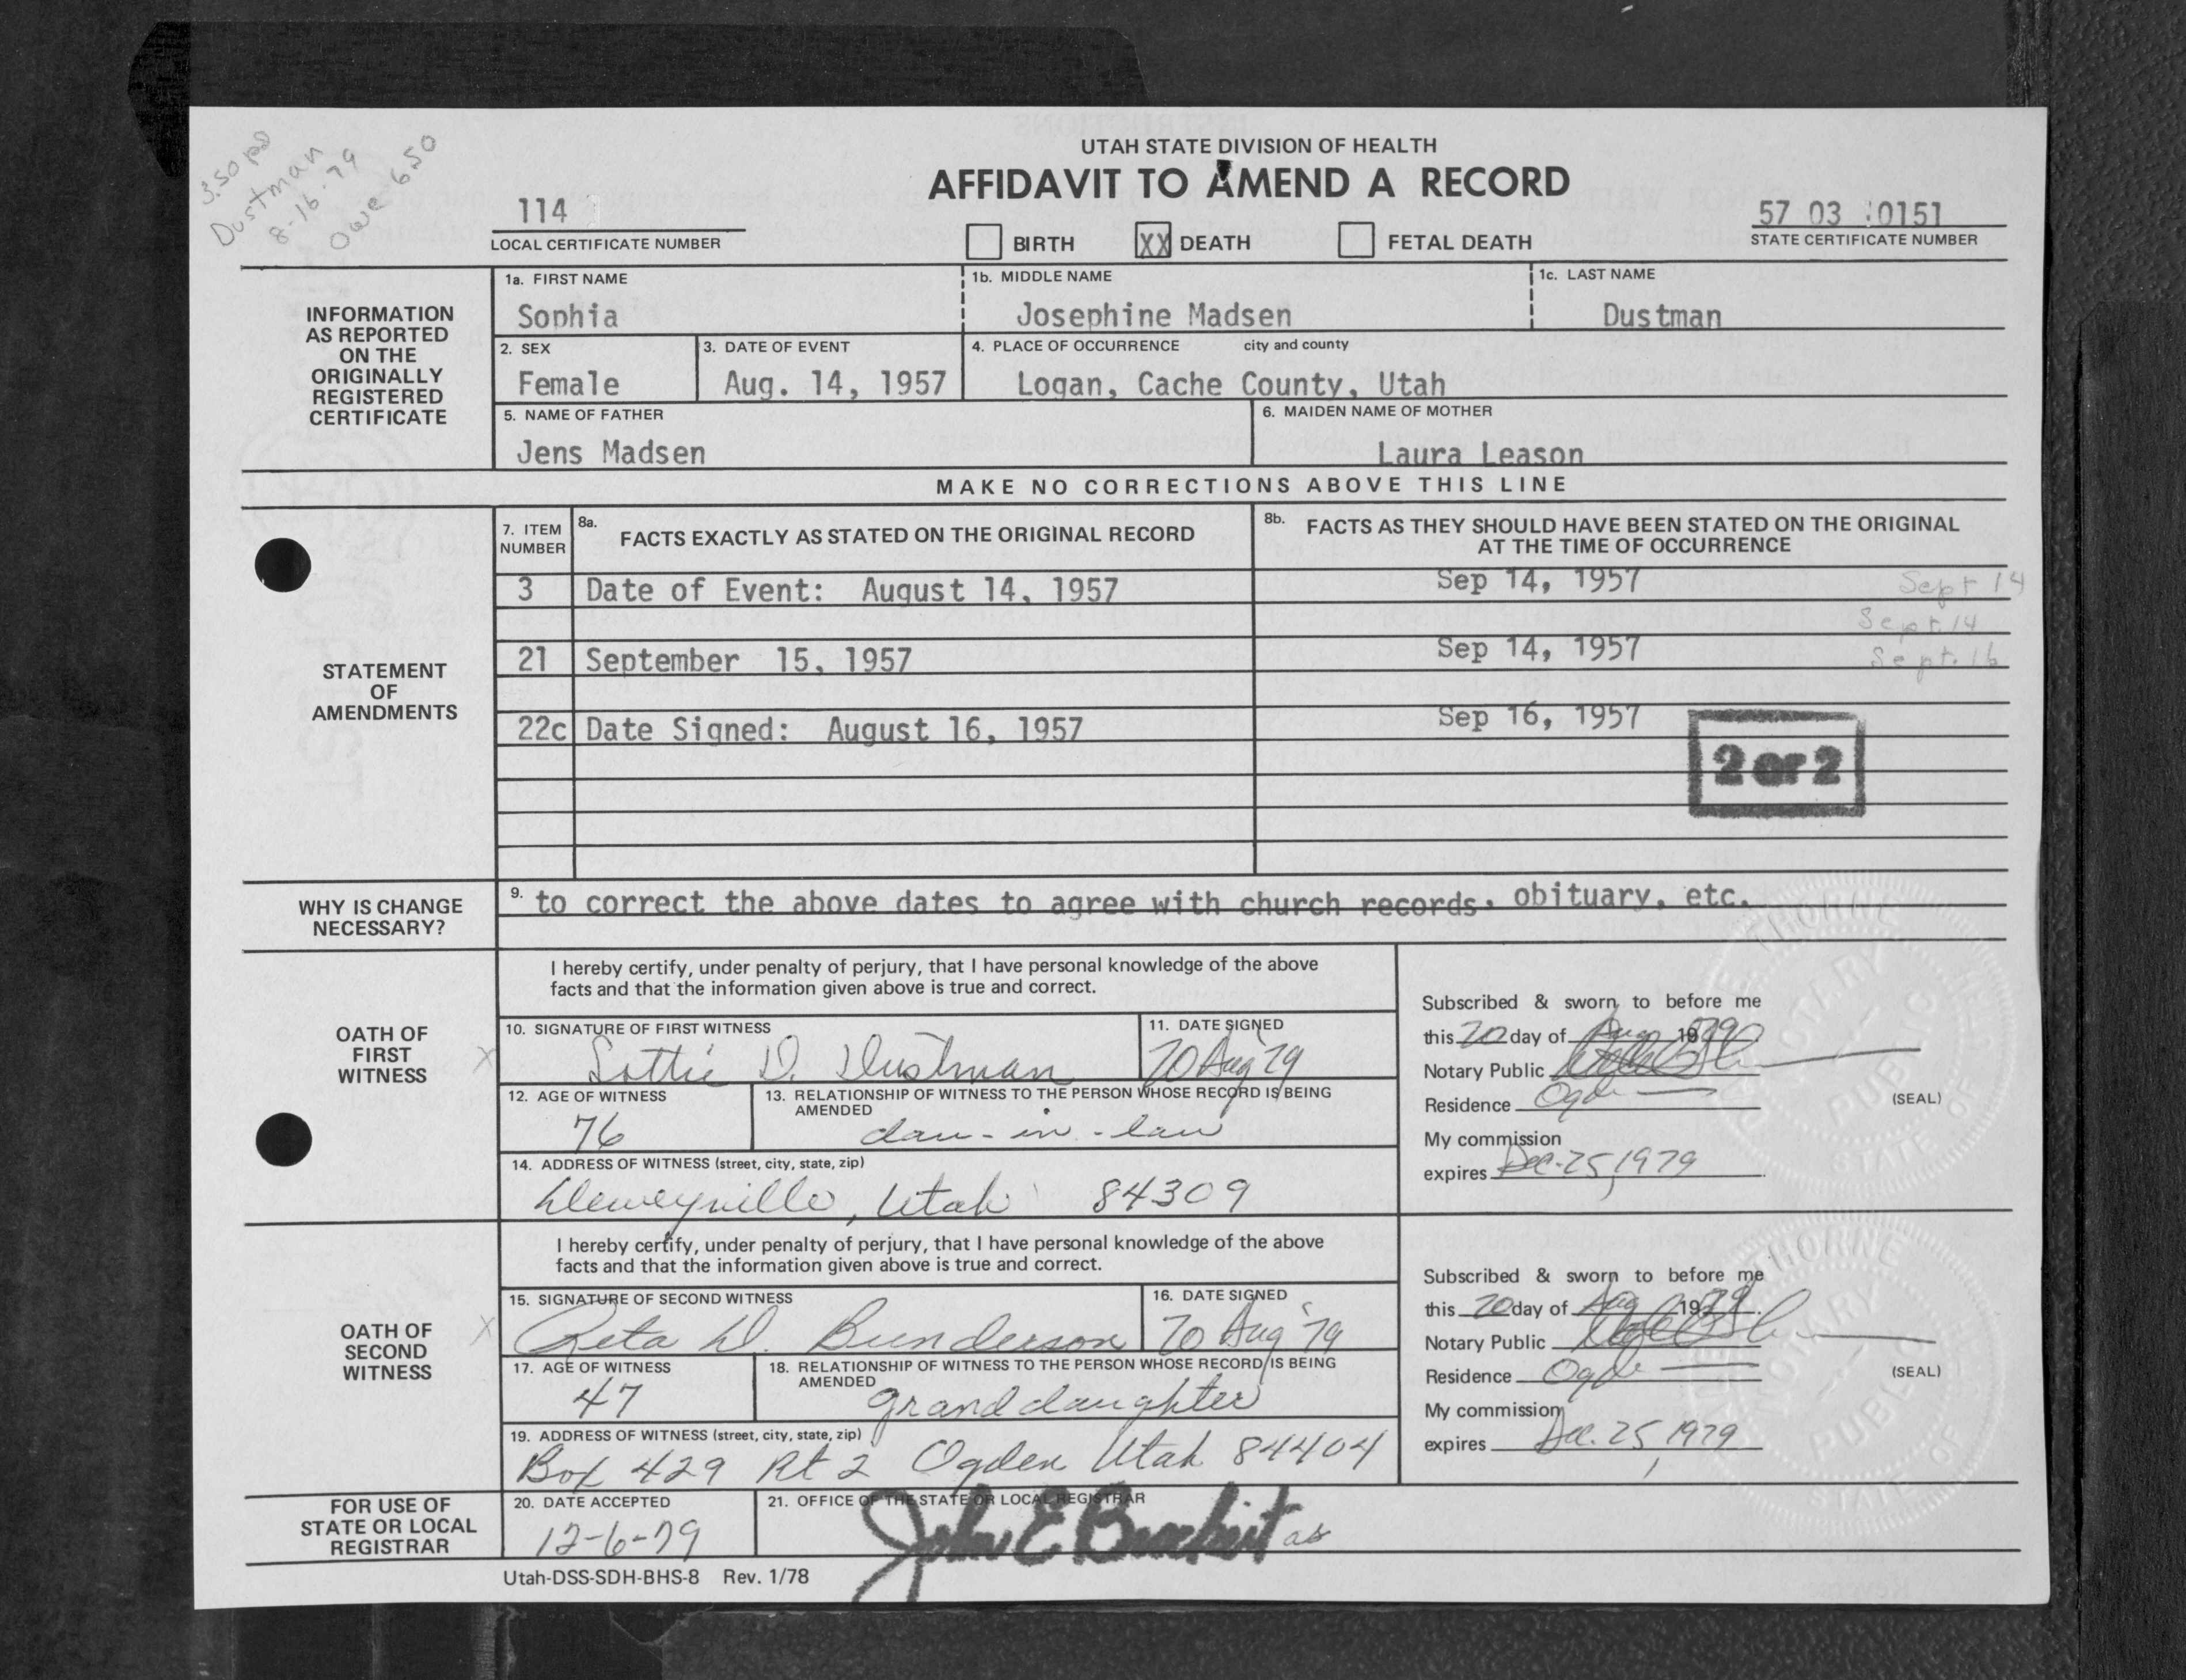 3.50 pd
Dustman
8-16-79
Owe 6.50
UTAH STATE DIVISION OF HEALTH
AFFIDAVIT TO AMEND A RECORD
114
LOCAL CERTIFICATE NUMBER
BIRTH XX DEATH FETAL DEATH
57 03 0151
STATE CERTIFICATE NUMBER
INFORMATION
AS REPORTED
ON THE
ORIGINALLY
REGISTERED
CERTIFICATE
1a. FIRST NAME 1b. MIDDLE NAME 1c. LAST NAME
Sophia Josephine Madsen Dustman
2. SEX 3. DATE OF EVENT 4. PLACE OF OCCURRENCE city and county
Female Aug. 14, 1957 Logan, Cache County, Utah
5. NAME OF FATHER 6. MAIDEN NAME OF MOTHER
Jens Madsen Laura Leason
MAKE NO CORRECTIONS ABOVE THIS LINE
STATEMENT
OF
AMENDMENTS
7. ITEM
NUMBER
8a. FACTS EXACTLY AS STATED ON THE ORIGINAL RECORD
8b. FACTS AS THEY SHOULD HAVE BEEN STATED ON THE ORIGINAL
AT THE TIME OF OCCURRENCE
3 Date of Event: August 14, 1957 Sep 14, 1957 Sept 14
Sept. 14
21 September 15, 1957 Sep 14, 1957 Sept. 16
22c Date Signed: August 16, 1957 Sep 16, 1957
2 or 2
WHY IS CHANGE
NECESSARY?
9. to correct the above dates to agree with church records, obituary, etc.
OATH OF
FIRST
WITNESS
I hereby certify, under penalty of perjury, that I have personal knowledge of the above
facts and that the information given above is true and correct.
10. SIGNATURE OF FIRST WITNESS 11. DATE SIGNED
X Lottie D. Dustman 20 Aug '79
12. AGE OF WITNESS 13. RELATIONSHIP OF WITNESS TO THE PERSON WHOSE RECORD IS BEING
AMENDED
76 dau-in-law
14. ADDRESS OF WITNESS (street, city, state, zip)
Deweyville, Utah 84309
Subscribed & sworn to before me
this 20 day of Aug 1979
Notary Public
Residence Ogden
(SEAL)
My commission
expires Dec. 25, 1979
THORNE
NOTARY
PUBLIC
STATE OF
OATH OF
SECOND
WITNESS
I hereby certify, under penalty of perjury, that I have personal knowledge of the above
facts and that the information given above is true and correct.
15. SIGNATURE OF SECOND WITNESS 16. DATE SIGNED
X Reta D. Bunderson 20 Aug '79
17. AGE OF WITNESS 18. RELATIONSHIP OF WITNESS TO THE PERSON WHOSE RECORD IS BEING
AMENDED
47 granddaughter
19. ADDRESS OF WITNESS (street, city, state, zip)
Box 429 Rt 2 Ogden Utah 84404
Subscribed & sworn to before me
this 20 day of Aug 1979.
Notary Public
Residence Ogden
(SEAL)
My commission
expires Dec. 25, 1979
THORNE
NOTARY
PUBLIC
STATE OF
FOR USE OF
STATE OR LOCAL
REGISTRAR
20. DATE ACCEPTED 21. OFFICE OF THE STATE OR LOCAL REGISTRAR
12-6-79 John E Brockert as
Utah-DSS-SDH-BHS-8 Rev. 1/78